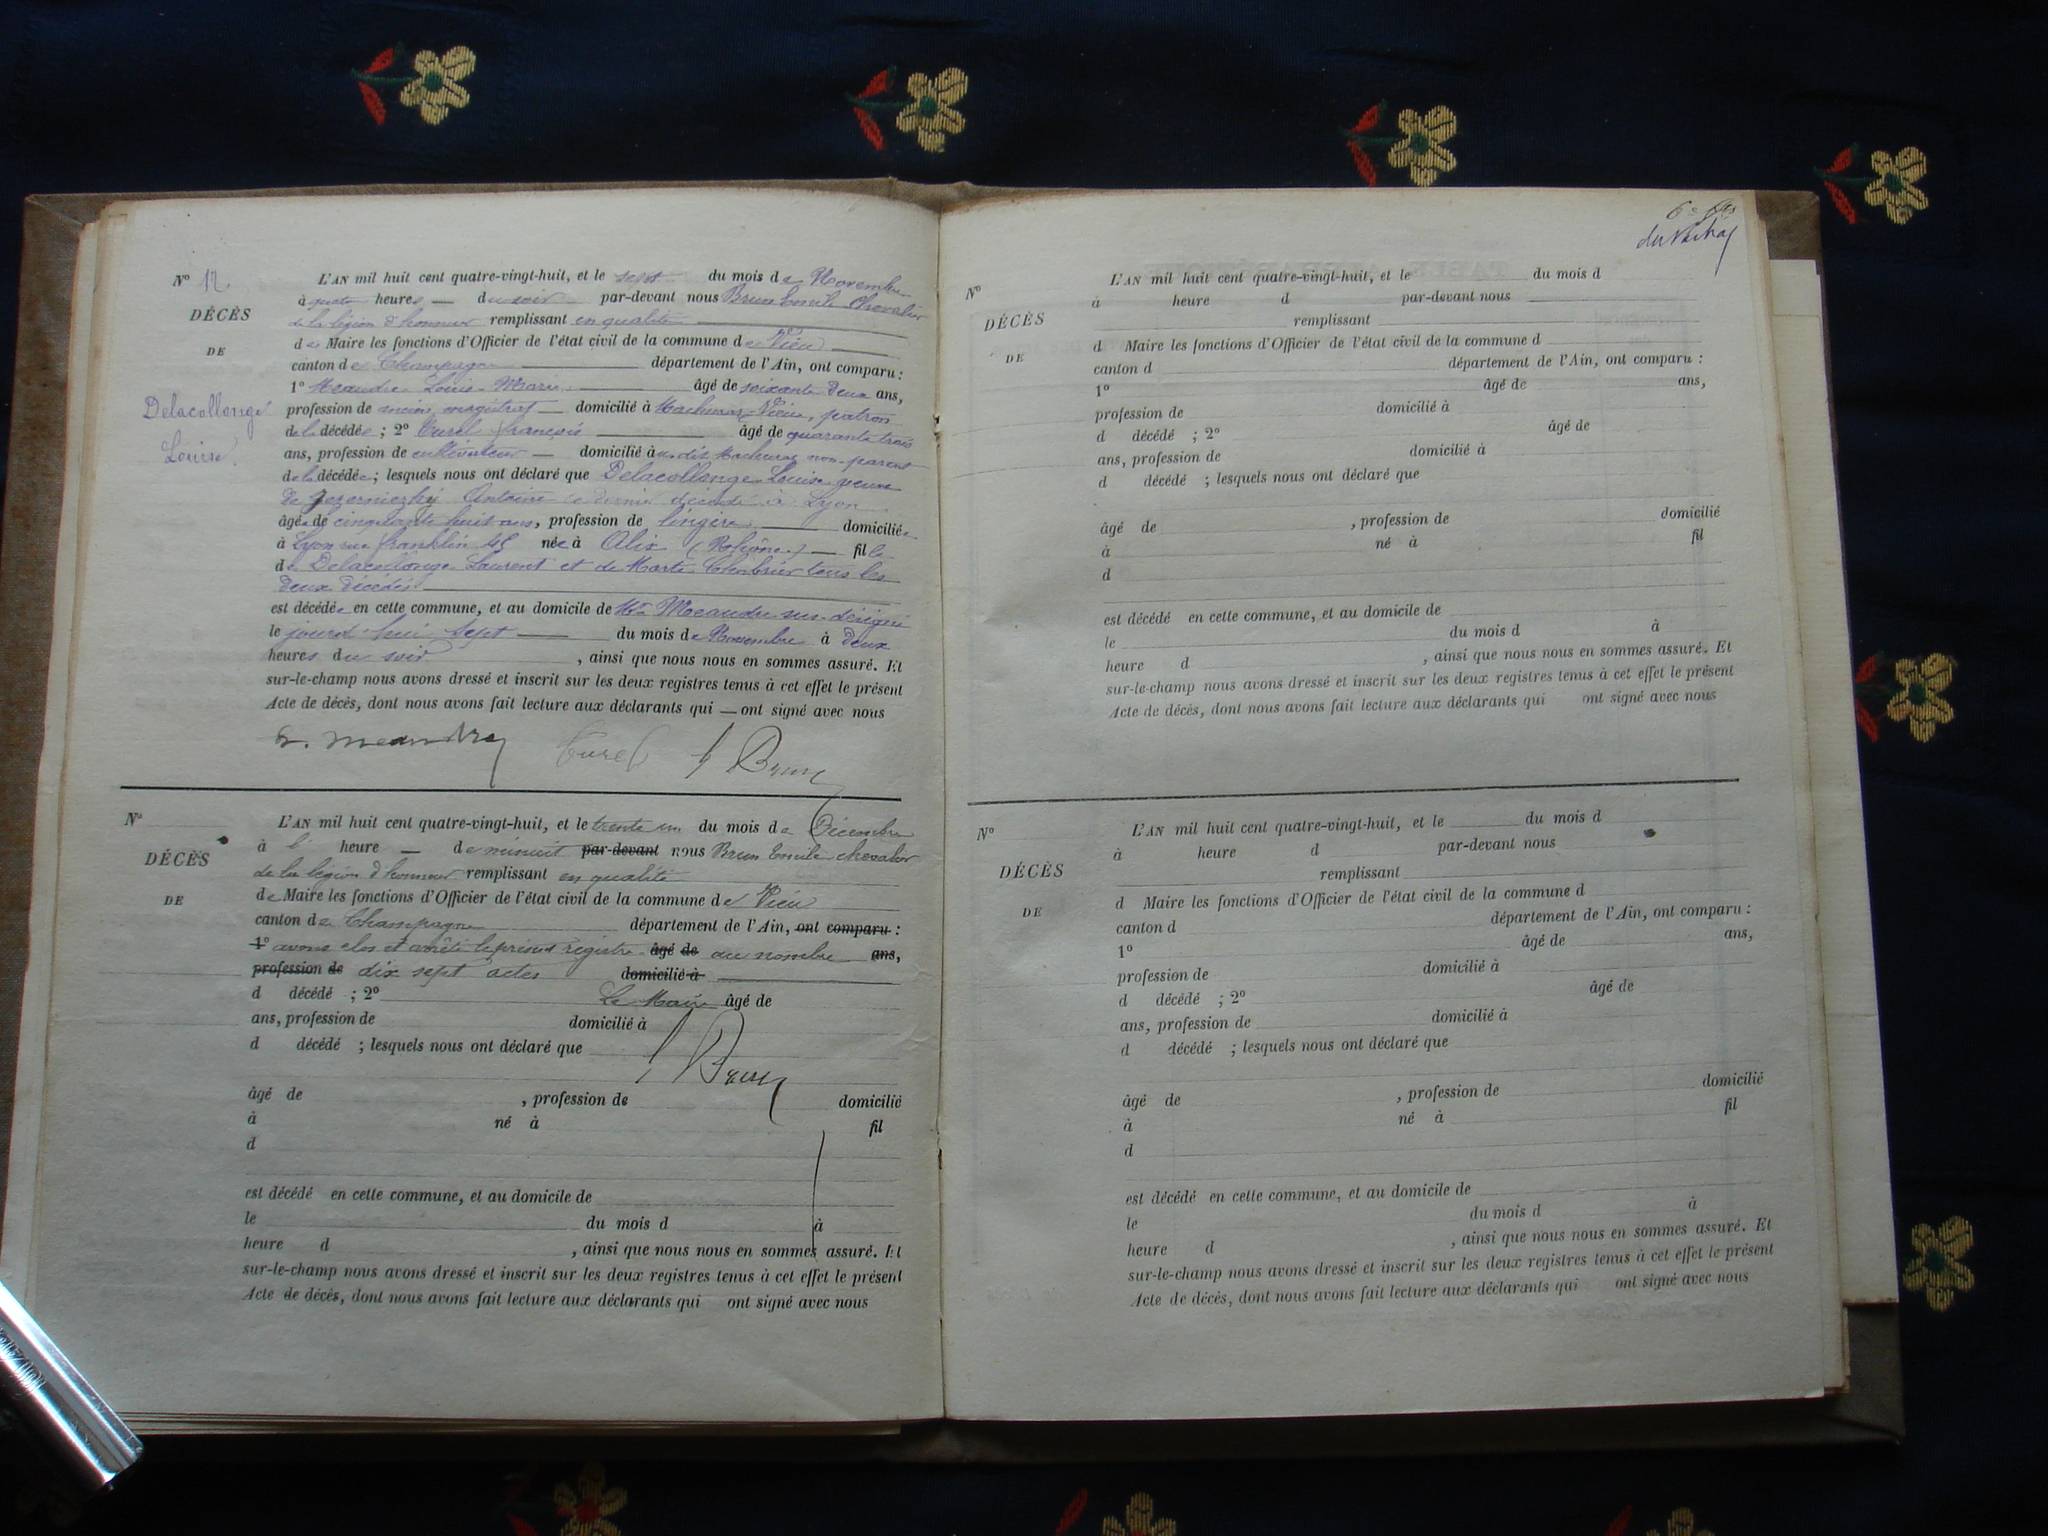 Nº 17
DÉCÈS
DE
Delacollonge
Louise
L'AN mil huit cent quatre-vingt-huit, et le sept du mois de Novembre
à quatre heures — du soir par-devant nous Brun Emile Chevalier
de la légion d'honneur remplissant en qualité
de Maire les fonctions d'Officier de l'état civil de la commune de Vieu
canton de Champagne département de l'Ain, ont comparu :
1º Meaudre Louis Marie âgé de soixante deux ans,
profession de ancien magistrat — domicilié à Machuraz-Vieu, patron
de la décédée ; 2º Curel françois âgé de quarante trois
ans, profession de cultivateur — domicilié à Machuraz non-parent
de la décédée ; lesquels nous ont déclaré que Delacollonge Louise veuve
De Antoine ce dernier décédé à Lyon
âgée de cinquante huit ans, profession de lingère domiciliée
à Lyon rue franklin 45 née à Alix (Rhône) — fille
de Delacollonge Laurent et de Marte Chabrier tous les
deux décédés
est décédée en cette commune, et au domicile de Mr Meaudre sus-désigné
le jourd'hui sept — du mois de Novembre à deux
heures du soir , ainsi que nous nous en sommes assuré. Et
sur-le-champ nous avons dressé et inscrit sur les deux registres tenus à cet effet le présent
Acte de décès, dont nous avons fait lecture aux déclarants qui — ont signé avec nous
L. Meaudre Curel E Brun
Nº
DÉCÈS
DE
L'AN mil huit cent quatre-vingt-huit, et le trente un du mois de Décembre
à l' heure — de minuit par-devant nous Brun Emile chevalier
de la légion d'honneur remplissant en qualité
de Maire les fonctions d'Officier de l'état civil de la commune de Vieu
canton de Champagne département de l'Ain, ont comparu :
1º avons clos et arrêté le présent registre âgé de au nombre ans,
profession de dix sept actes domicilié à
d décédé ; 2º Le Maire âgé de
ans, profession de domicilié à
d décédé ; lesquels nous ont déclaré que
E Brun
âgé de , profession de domicilié
à né à fil
d
est décédé en cette commune, et au domicile de
le du mois d à
heure d , ainsi que nous nous en sommes assuré. Et
sur-le-champ nous avons dressé et inscrit sur les deux registres tenus à cet effet le présent
Acte de décès, dont nous avons fait lecture aux déclarants qui ont signé avec nous
Nº
DÉCÈS
DE
L'AN mil huit cent quatre-vingt-huit, et le du mois d
à heure d par-devant nous
remplissant
d Maire les fonctions d'Officier de l'état civil de la commune d
canton d département de l'Ain, ont comparu :
1º âgé de ans,
profession de domicilié à
d décédé ; 2º âgé de
ans, profession de domicilié à
d décédé ; lesquels nous ont déclaré que
âgé de , profession de domicilié
à né à fil
d
est décédé en cette commune, et au domicile de
le du mois d à
heure d , ainsi que nous nous en sommes assuré. Et
sur-le-champ nous avons dressé et inscrit sur les deux registres tenus à cet effet le présent
Acte de décès, dont nous avons fait lecture aux déclarants qui ont signé avec nous
Nº
DÉCÈS
DE
L'AN mil huit cent quatre-vingt-huit, et le du mois d
à heure d par-devant nous
remplissant
d Maire les fonctions d'Officier de l'état civil de la commune d
canton d département de l'Ain, ont comparu :
1º âgé de ans,
profession de domicilié à
d décédé ; 2º âgé de
ans, profession de domicilié à
d décédé ; lesquels nous ont déclaré que
âgé de , profession de domicilié
à né à fil
d
est décédé en cette commune, et au domicile de
le du mois d à
heure d , ainsi que nous nous en sommes assuré. Et
sur-le-champ nous avons dressé et inscrit sur les deux registres tenus à cet effet le présent
Acte de décès, dont nous avons fait lecture aux déclarants qui ont signé avec nous